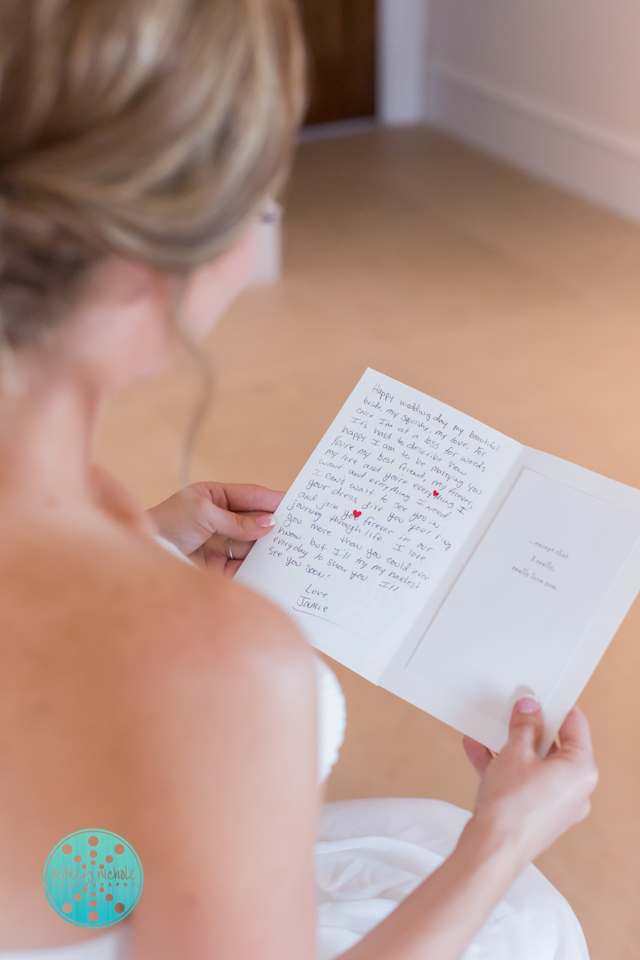 Happy wedding day my beautiful
bride, my squishy, my love. For
once I'm at a loss for words
It's hard to describe how
happy I am to be marrying you
You're my best friend, my forever,
my love and you're everything I
want and everything I need
I can't wait to see you in
your dress, give you your ring
and join you forever in our
journey through life. I love
you more than you could ever
know but I'll try my hardest
everyday to show you. I'll
see you soon!
Love
Jamie
...except that
I really,
really love you.
ashley nichole